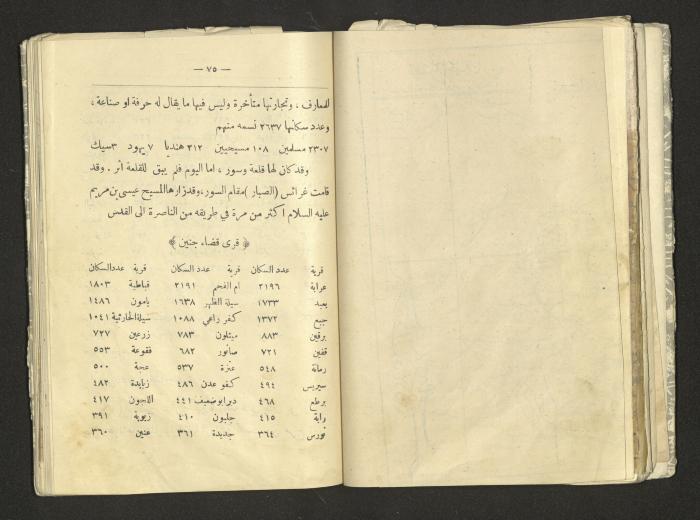 — ٧٥ —
المعارف ، وتجارتها متأخرة وليس فيها ما يقال له حرفة او صناعة ،
وعدد سكانها ٢٦٣٧ نسمه منهم
٢٣٠٧ مسلمين ١٠٨ مسيحيين ٢١٢ هنديا ٧ يهود ٣ سيك
وقد كان لها قلعة وسور ، اما اليوم فلم يبق للقلعة اثر . وقد
قامت غرائس (الصبار) مقام السور ، وقد زارها المسيح عيسى بن مريم
عليه السلام اكثر من مرة في طريقه من الناصرة الى القدس
﴿ قرى قضاء جنين ﴾
قرية عدد السكان قرية عدد السكان قرية عدد السكان
عرابة ٢١٩٦ ام الفحم ٢١٩١ قباطية ١٨٠٣
يعبد ١٧٣٣ سيلة الظهر ١٦٣٨ يامون ١٤٨٦
جبع ١٣٧٢ كفر راعي ١٠٨٨ سيلة الحارثية ١٠٤١
برقين ٨٨٣ ميثلون ٧٨٣ زرعين ٧٢٧
قفين ٧٢١ صانور ٦٨٢ فقوعة ٥٥٣
رمانة ٥٤٨ عنزة ٥٣٧ عجة ٥٠٠
سيريس ٤٩٤ كفو عدن ٤٨٦ زبابدة ٤٨٢
برطع ٤٦٨ دير ابو ضعيف ٤٤١ اللجون ٤١٧
رابة ٤١٥ جلبون ٤١٠ زبوبة ٣٩١
نورس ٣٦٤ جديدة ٣٦١ عنين ٣٦٠